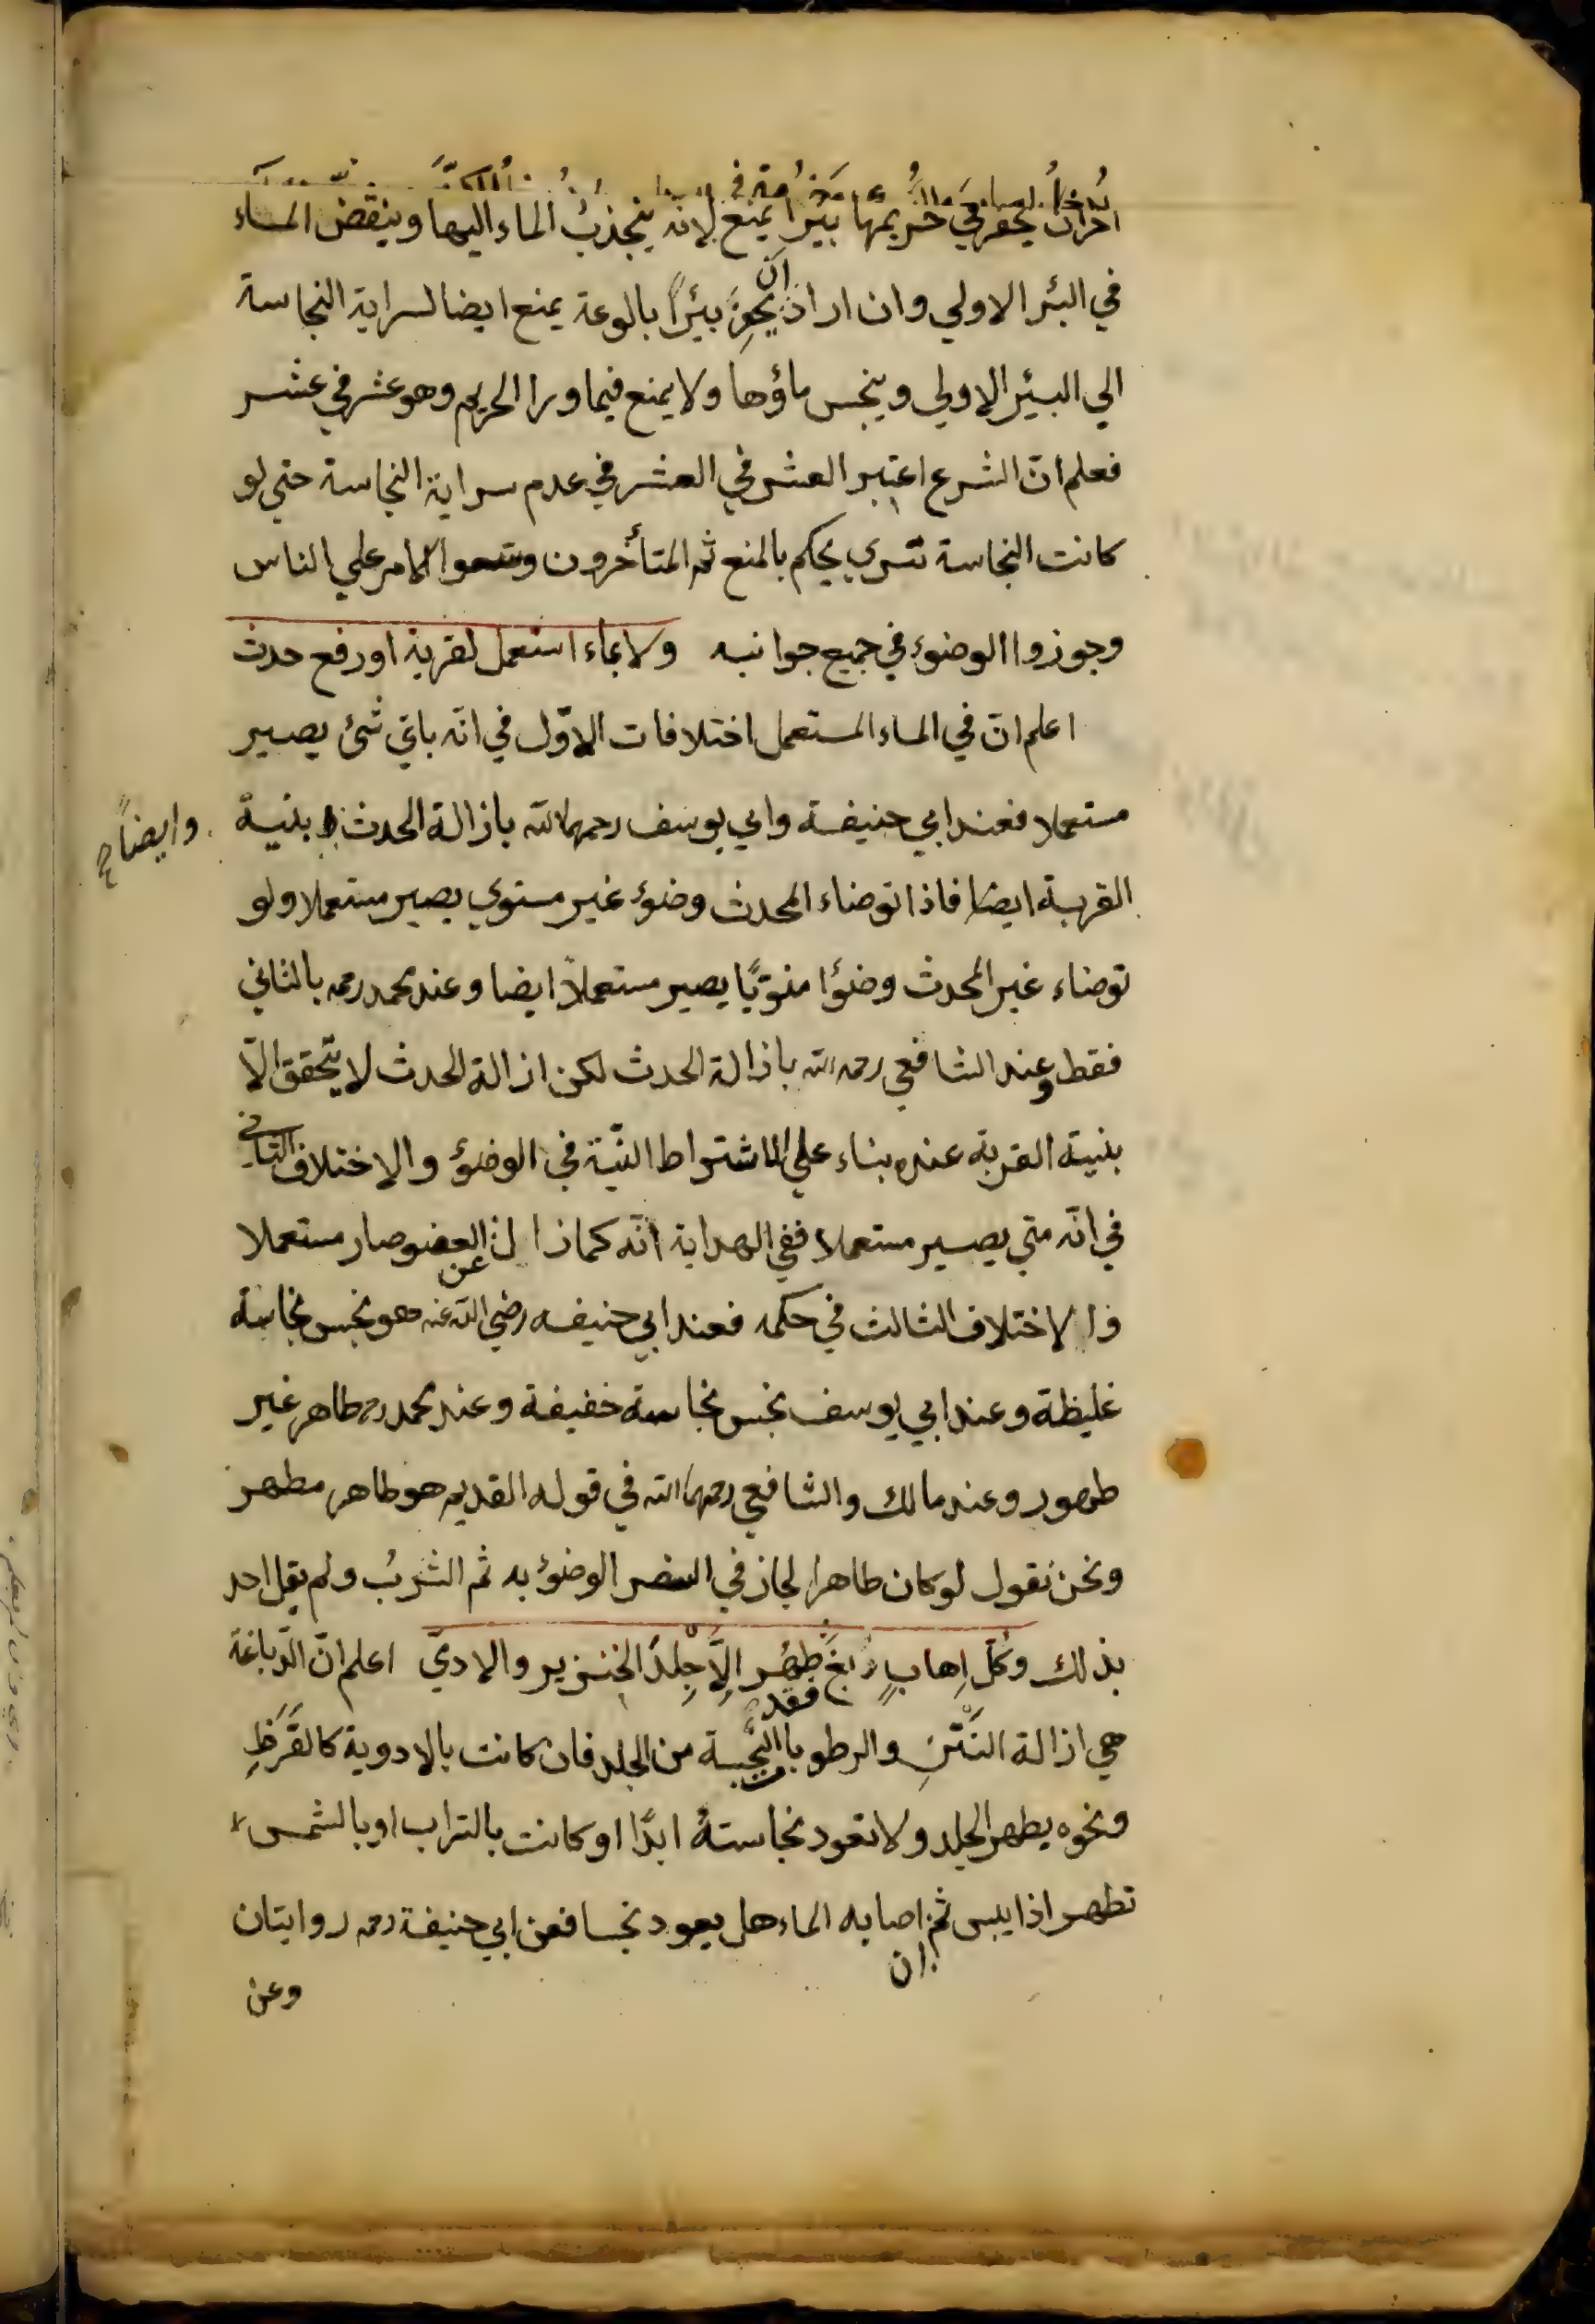 آخر ان يحفر في حريمها بئرا يمنع لانه ينجذب الماء اليها وينقض الماء
في البئر الاولي وان اراد ان يحفر بيئرًا بالوعة يمنع ايضا لسراية النجاسة
الي البيئر الاولي وينجس ماؤها ولا يمنع فيما ورا الحريم وهو عشر في عشر
فعلم انّ الشرع اعتبر العشر في العشر في عدم سراية النجاسة حتي لو
كانت النجاسة تسري يحكم بالمنع ثم المتأخرون وسعوا الامر علي الناس
وجوزوا الوضوء في جميع جوانبه ولا بماء استعمل لقربة او رفع حدث
اعلم انّ في الماء المستعمل اختلافات الاوّل في انّه بايّ شئ يصير
مستعملا فعند ابي حنيفة وابي يوسف رحمهما الله بازالة الحدث بنية
وايضاً
القربة ايضا فاذا توضاء المحدث وضوء غير منوي يصير مستعملا ولو
توضاء غير المحدث وضوًا منويًا يصير مستعملاً ايضا وعند محمد رحمه بالثاني
فقط وعند الشافعي رحمه الله بازالة الحدث لكن ازالة الحدث لا يتحقق الّا
بنية القربة عنده بناء علي اشتراط النيّة في الوضوء والاختلاف الثاني
في انّه متي يصير مستعملا ففي الهداية انّه كما زال عن العضو صار مستعملا
والاختلاف الثالث في حكمه فعند ابي حنيفه رضي الله عنه هو نجس نجاسة
غليظة وعند ابي يوسف نجس نجاسة خفيفة وعند محمد رحمه طاهر غير
طهور وعند مالك والشافعي رحمهما الله في قوله القديم هو طاهر مطهر
ونحن نقول لو كان طاهرا لجاز في السفر الوضوء به ثم الشربُ ولم يقل احد
بذلك وكلّ اِهابٍ دبغ فقد طهُر اِلّا جِلْدَ الخنزير والادميّ اعلم انّ الدّباغة
هي ازالة النَّتْنِ والرطوبات النجسة من الجلد فان كانت بالادوية كالقَرَظِ
ونحوه يطهر الجلد ولا تعود نجاستهُ ابدًا او كانت بالتراب او بالشمس
تطهر اذا يبس ثم ان اصابه الماء هل يعود نجسا فعن ابي حنيفة رحمه روايتان
وعن